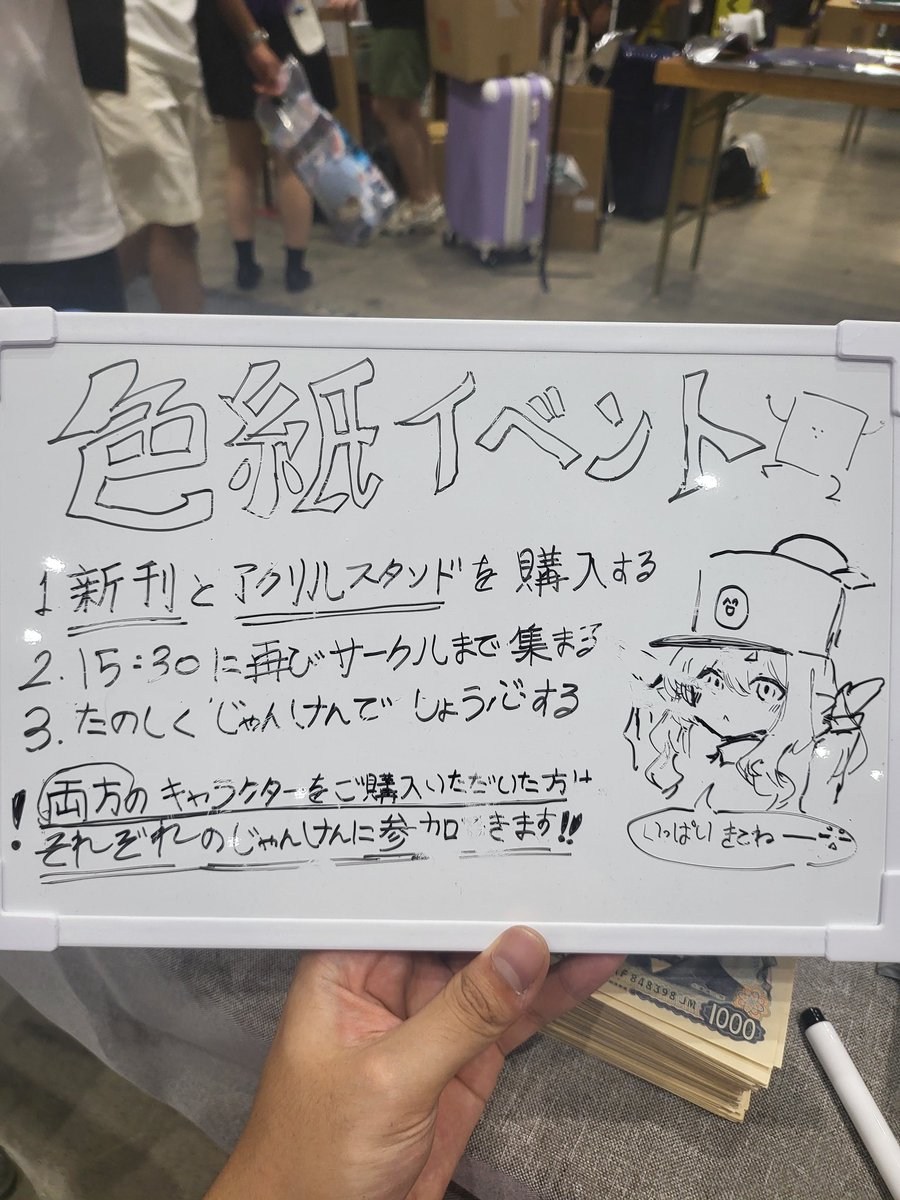 色紙イベント
1 新刊とアクリルスタンドを購入する
2. 15:30に再びサークルまで集まる
3. たのしくじゃんけんでしょう心する
! 両方のキャラクターをご購入いただいた方は
それぞれのじゃんけんに参加 きます!!
いっぱいきてねー
848398 JM
1000